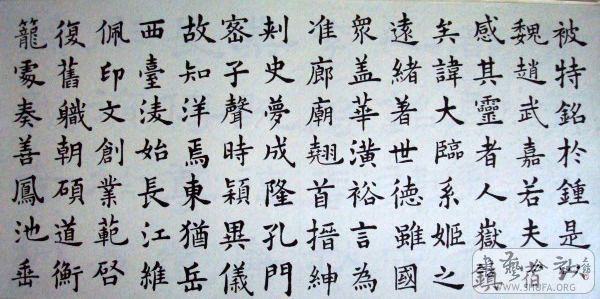 被特銘於鍾是以
魏趙武嘉若夫
感其靈者人嶽鎮
矣諱大臨系姬之
遠緒著世德雖國
眾盖華潢裕言為
准廊廟翹首搢紳
刺史夢成隆孔門
密子聲時穎異儀
故知洋焉東猶岳
西臺淩始長江維
佩印文創業範啓
復舊職朝碩道衡
籠處奏善鳳池垂
WWW.SHUFA.ORG